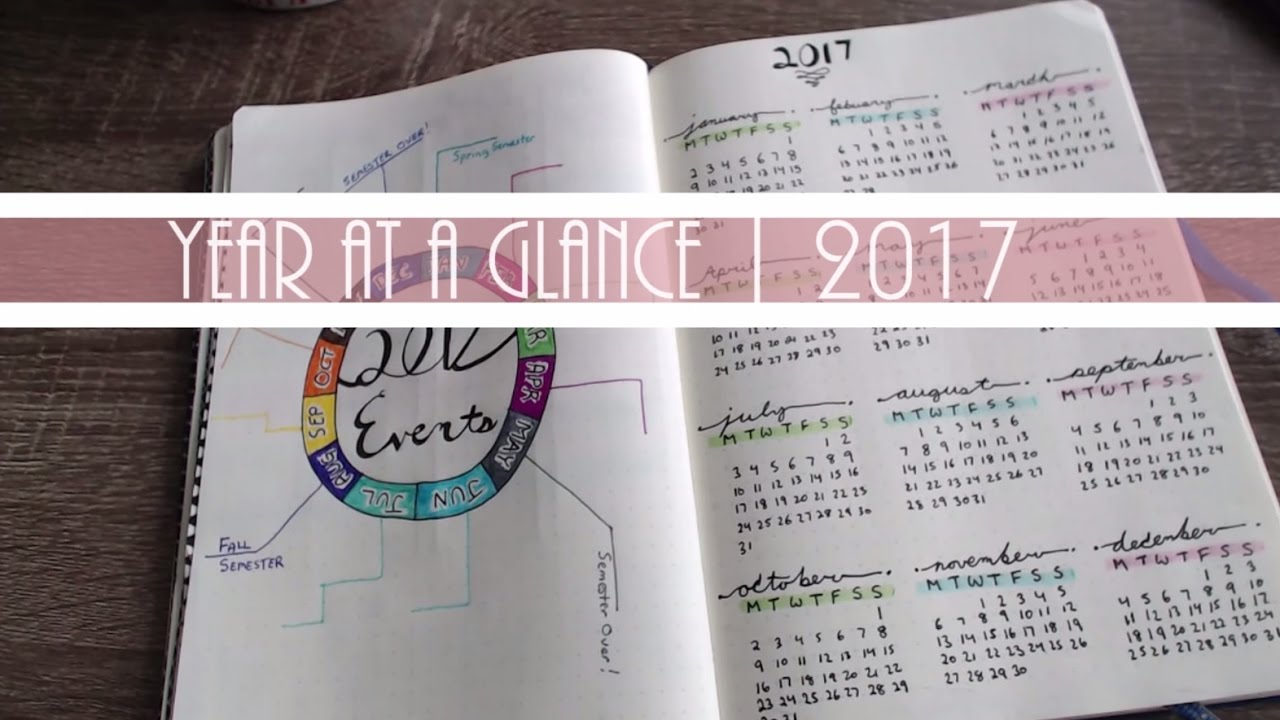 YEAR AT A GLANCE | 2017
SEMESTER OVER!
Spring Semester
DEC
JAN
FEB
OCT
APR
SEP
MAY
AUG
JUL
JUN
Events
FALL
SEMESTER
Semester Over!
2017
january
M T W T F S S
1
2 3 4 5 6 7 8
9 10 11 12 13 14 15
30 31
febuary
M T W T F S S
1 2 3 4 5
6 7 8 9 10 11 12
13 14 15 16 17 18 19
20 21 22 23 24 25 26
march
M T W T F S S
1 2 3 4 5
6 7 8 9 10 11 12
13 14 15 16 17 18 19
20 21 22 23 24 25 26
27 28 29 30 31
April
M T W T F S S
1 2
17 18 19 20 21 22 23
24 25 26 27 28 29 30
may
29 30 31
june
M T W T F S S
1 2 3 4
5 6 7 8 9 10 11
july
M T W T F S S
1 2
3 4 5 6 7 8 9
10 11 12 13 14 15 16
17 18 19 20 21 22 23
24 25 26 27 28 29 30
31
august
M T W T F S S
1 2 3 4 5 6
7 8 9 10 11 12 13
14 15 16 17 18 19 20
21 22 23 24 25 26 27
28 29 30 31
september
M T W T F S S
1 2 3
4 5 6 7 8 9 10
11 12 13 14 15 16 17
18 19 20 21 22 23 24
25 26 27 28 29 30
october
M T W T F S S
1
2 3 4 5 6 7 8
9 10 11 12 13 14 15
16 17 18 19 20 21 22
23 24 25 26 27 28 29
30 31
november
M T W T F S S
1 2 3 4 5
6 7 8 9 10 11 12
13 14 15 16 17 18 19
20 21 22 23 24 25 26
27 28 29 30
december
M T W T F S S
1 2 3
4 5 6 7 8 9 10
11 12 13 14 15 16 17
18 19 20 21 22 23 24
25 26 27 28 29 30 31